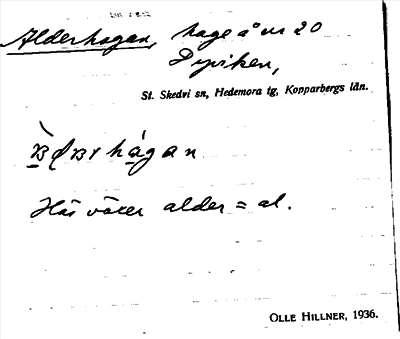 Alderhagen, hage å nr 20
Dyviken,
St. Skedvi sn, Hedemora tg, Kopparbergs län.
hågan
Här växer alder = al.
OLLE HILLNER, 1936.